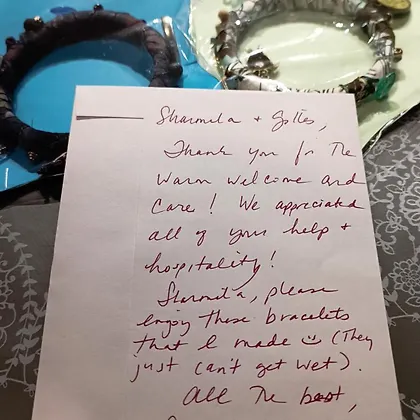 Sharmila + Gilles,
Thank you for The
warm welcome and
care! We appreciated
all of your help +
hospitality!
Sharmila, please
enjoy these bracelets
that I made ☺ (They
just can't get wet).
All The best,